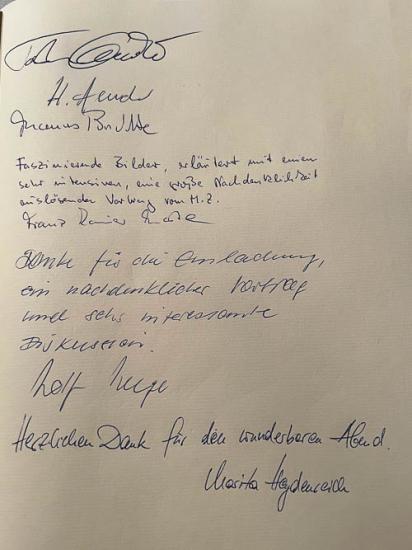 H.
Faszinierende Bilder, erläutert mit einem
sehr intensiven, eine große Nachdenklichkeit
auslösenden Vortrag vom M. Z.
Franz Rainer
Danke für die Einladung,
ein nachdenklicher Vortrag
und sehr interessante
Diskussion.
Rolf
Herzlichen Dank für den wunderbaren Abend.
Marita Heydenreich